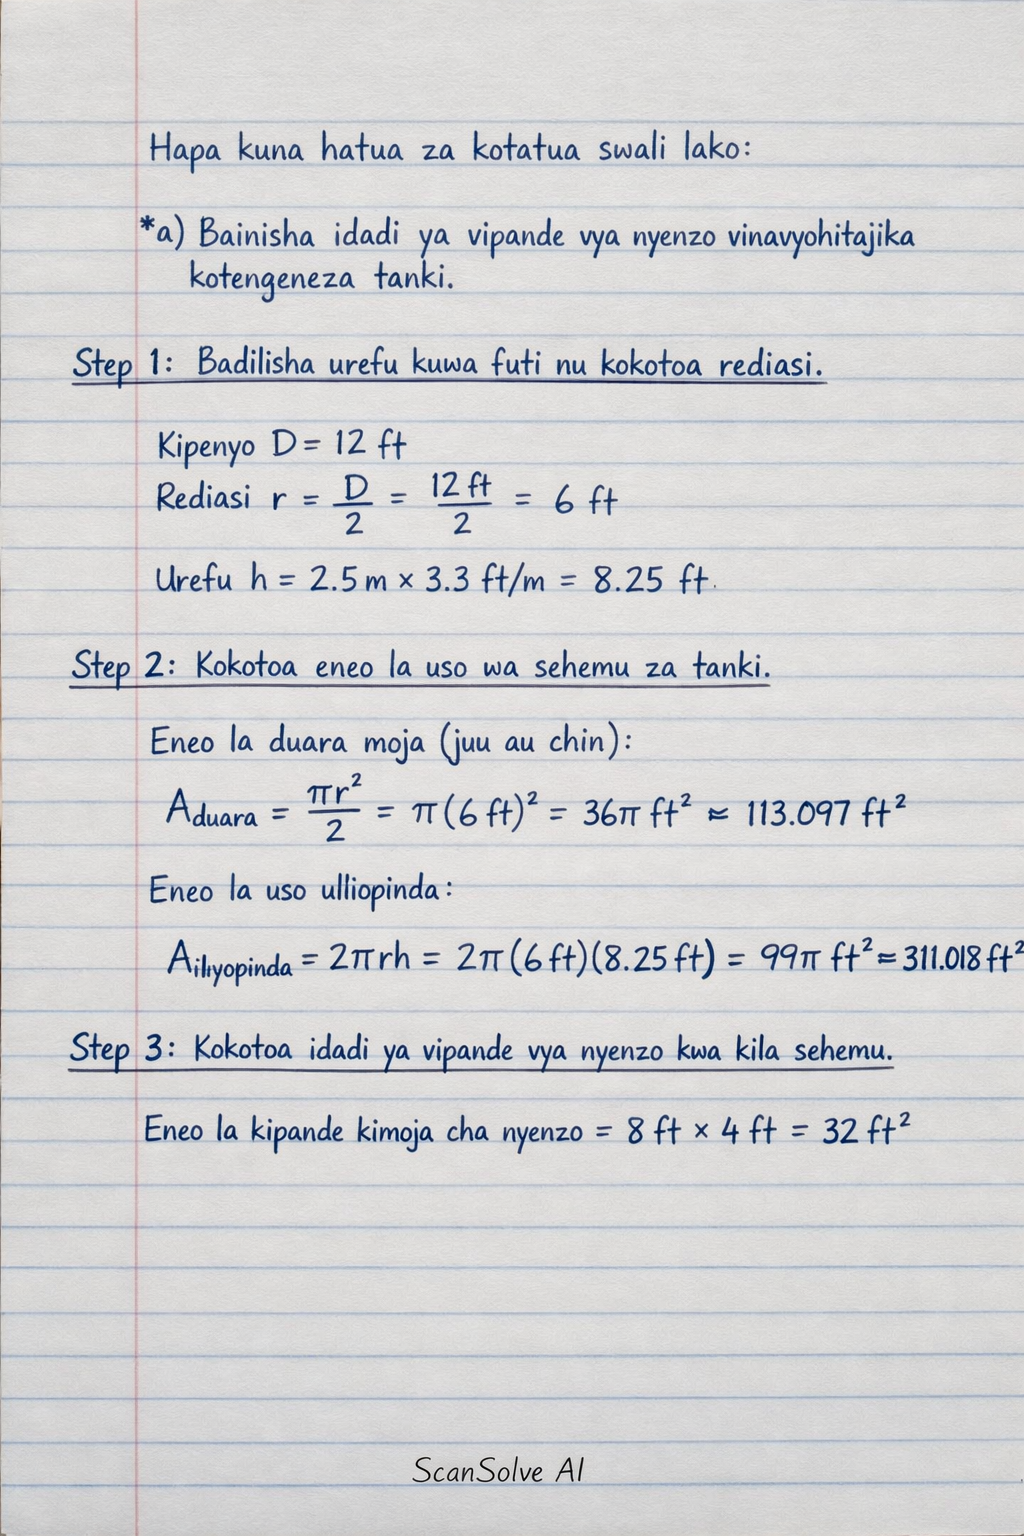 Hapa kuna hatua za kotatua swali lako:
*a) Bainisha idadi ya vipande vya nyenzo vinavyohitajika
kotengeneza tanki.
Step 1: Badilisha urefu kuwa futi nu kokotoa rediasi.
Kipenyo D = 12 ft
Rediasi r = D/2 = 12 ft/2 = 6 ft
Urefu h = 2.5 m × 3.3 ft/m = 8.25 ft.
Step 2: Kokotoa eneo la uso wa sehemu za tanki.
Eneo la duara moja (juu au chin):
Aduara = πr²/2 = π(6 ft)² = 36π ft² ≈ 113.097 ft²
Eneo la uso ulliopinda:
Ailiyopinda = 2πrh = 2π(6 ft)(8.25 ft) = 99π ft² ≈ 311.018 ft²
Step 3: Kokotoa idadi ya vipande vya nyenzo kwa kila sehemu.
Eneo la kipande kimoja cha nyenzo = 8 ft × 4 ft = 32 ft²
ScanSolve AI